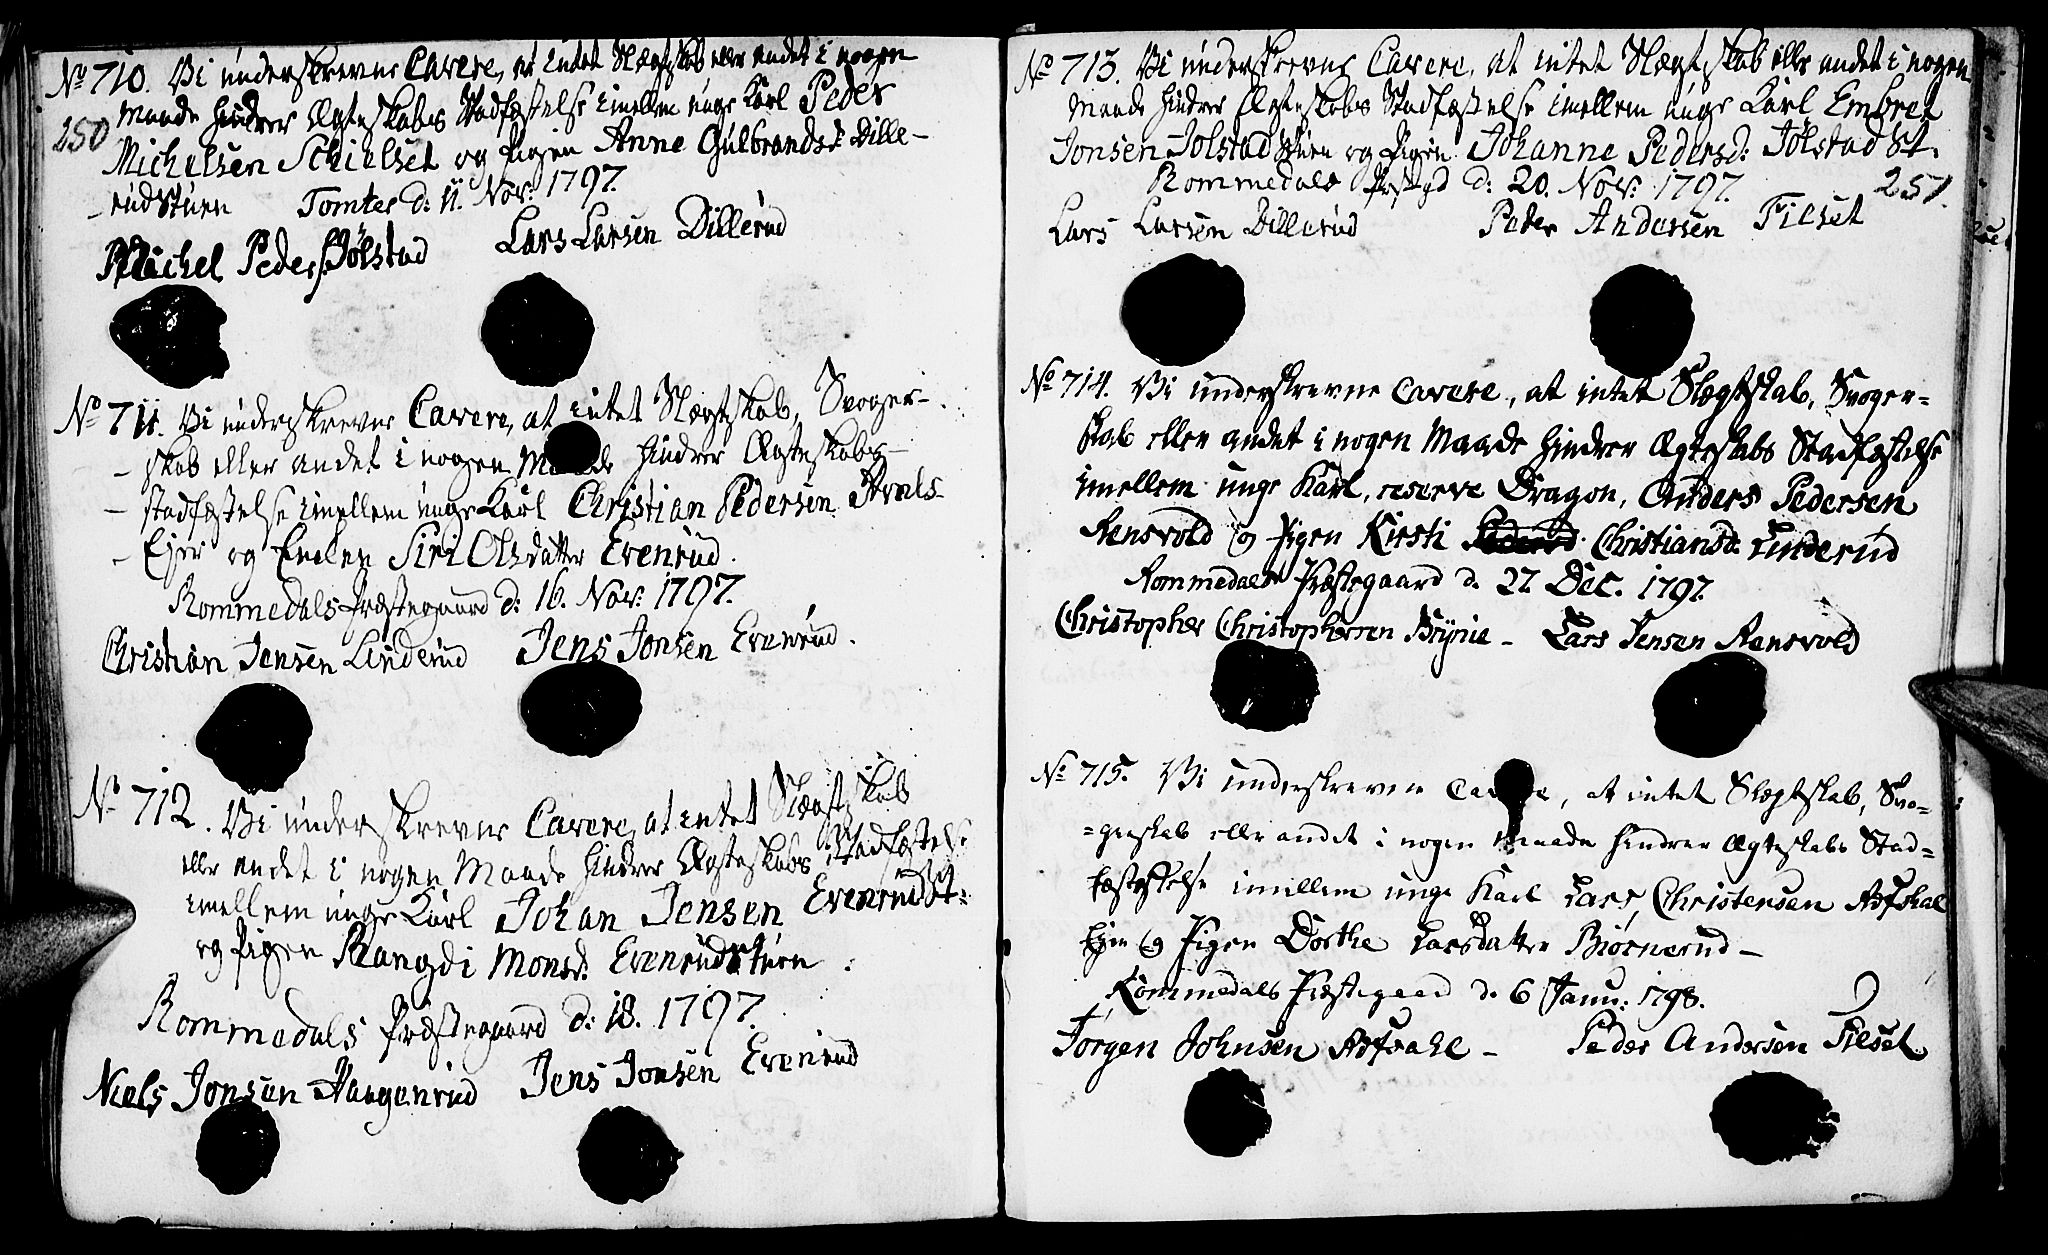 No 710. Vi underskrevne Cavere, at intet Slægtskab eller andet i nogen
Maade hindrer Ægteskabs Stadfæstelse imellem unge Karl Peder
250
Michelsen Schielset og Pigen Anne Gulbrandsd: Dille-
-rudstuen Tomter d: 11. Nov: 1797.
Michel Peders: Jølstad Lars Larsen Dillerud
No 711. Vi underskrevne Cavere, at intet Slægtskab, Svoger-
-skab eller andet i nogen Maade hindrer Ægteskabs-
-stadfæstelse imellem unge Karl Christian Pedersen
-Ejer og Enken Siri Olsdatter Evenrud.
Rommedals Præstegaard d: 16. Nov: 1797.
Christian Jensen Linderud Jens Jonsen Evenrud.
No 712. Vi underskrevne Cavere, at intet Slægtskab
eller andet i nogen Maade hindrer Ægteskabs Stadfæstelse
imellem unge Karl Johan Jensen Evenrudst:
og Pigen Rangdi Monsd: Evenrudstuen
Rommedals Præstegaard d: 18. 1797.
Niels Jonsen Haugenrud Jens Jonsen Evenrud
No 713. Vi underskrevne Cavere, at intet Slægtskab eller andet i nogen
Maade hindrer Ægteskabs Stadfæstelse imellem unge Karl Embret
Jonsen Jølstadstuen og Pigen Johanne Pedersd: Jølstadst.
Rommedals Præstgd d: 20. Nov: 1797.
251.
Lars Larsen Dillerud Peder Andersen Filset
No 714. Vi underskrevne Cavere, at intet Slægtskab, Svoger-
skab eller andet i nogen Maade hindrer Ægteskabs Stadfæstelse
imellem unge Karl, reserve Dragon, Anders Pedersen
Aensvold og Pigen Kirsti Christiansd: Linderud
Rommedals Præstegaard d. 27 Dec. 1797.
Christopher Christophersen Brynie - Lars Jensen Aensvold
No 715. Vi underskrevne Cavere, at intet Slægtskab, Svo-
=gerskab eller andet i nogen Maade hindrer Ægteskabs Stad=
fæstelse imellem unge Karl Lars Christensen
Ejer og Pigen Dorthe Larsdatter Biørnerud-
Rommedals Præstegaard d. 6 Janu: 1798.
Jørgen Johnsen - Peder Andersen Filset.